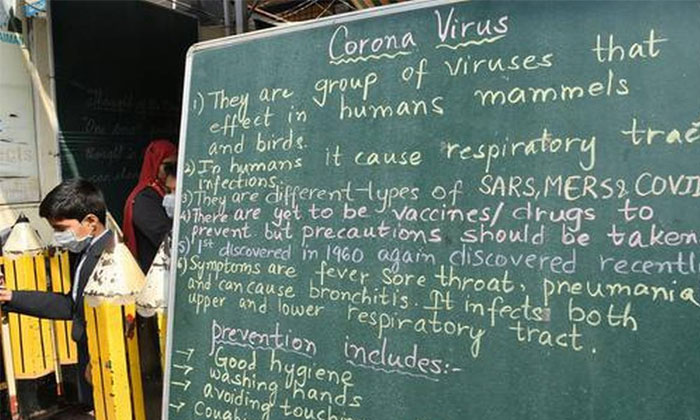 Corona Virus
1) They are group of viruses that
effect in humans mammels
and birds.
2) In humans it cause respiratory tract
infections.
3) They are different types of SARS, MERS & COVI
4) There are yet to be vaccines/drugs to
prevent but precautions should be taken
5) 1st discovered in 1960 again discovered recentl
6) Symptoms are fever sore throat, pneumania
and can cause bronchitis. It infects both
upper and lower respiratory tract.
prevention includes:-
→ Good hygiene
→ washing hands
→ avoiding touchin
→ Coughi